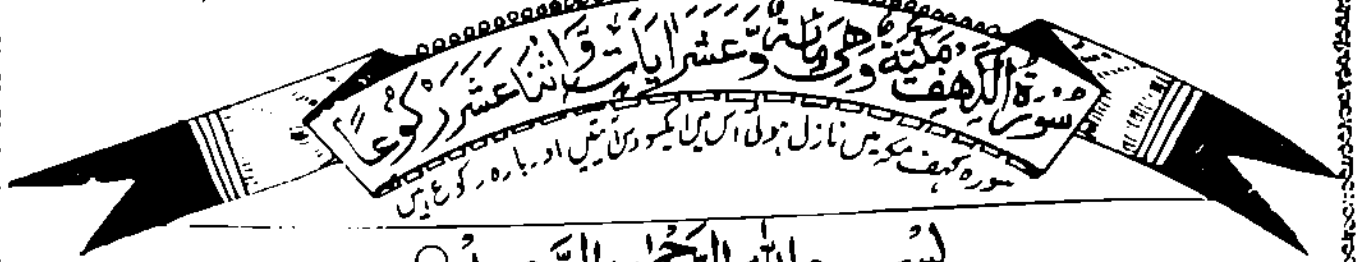 سُوْرَةُ الْكَهْفِ مَكِّيَّةٌ وَّهِيَ مِائَةٌ وَّعَشَرُ اٰيَاتٍ وَّاثْنَا عَشَرَ رُكُوْعًا
سورہ کہف مکہ میں نازل ہوئی اس میں ایکسو دس آیتیں اور بارہ رکوع ہیں
بِسْمِ اللّٰهِ الرَّحْمٰنِ الرَّحِيْمِ